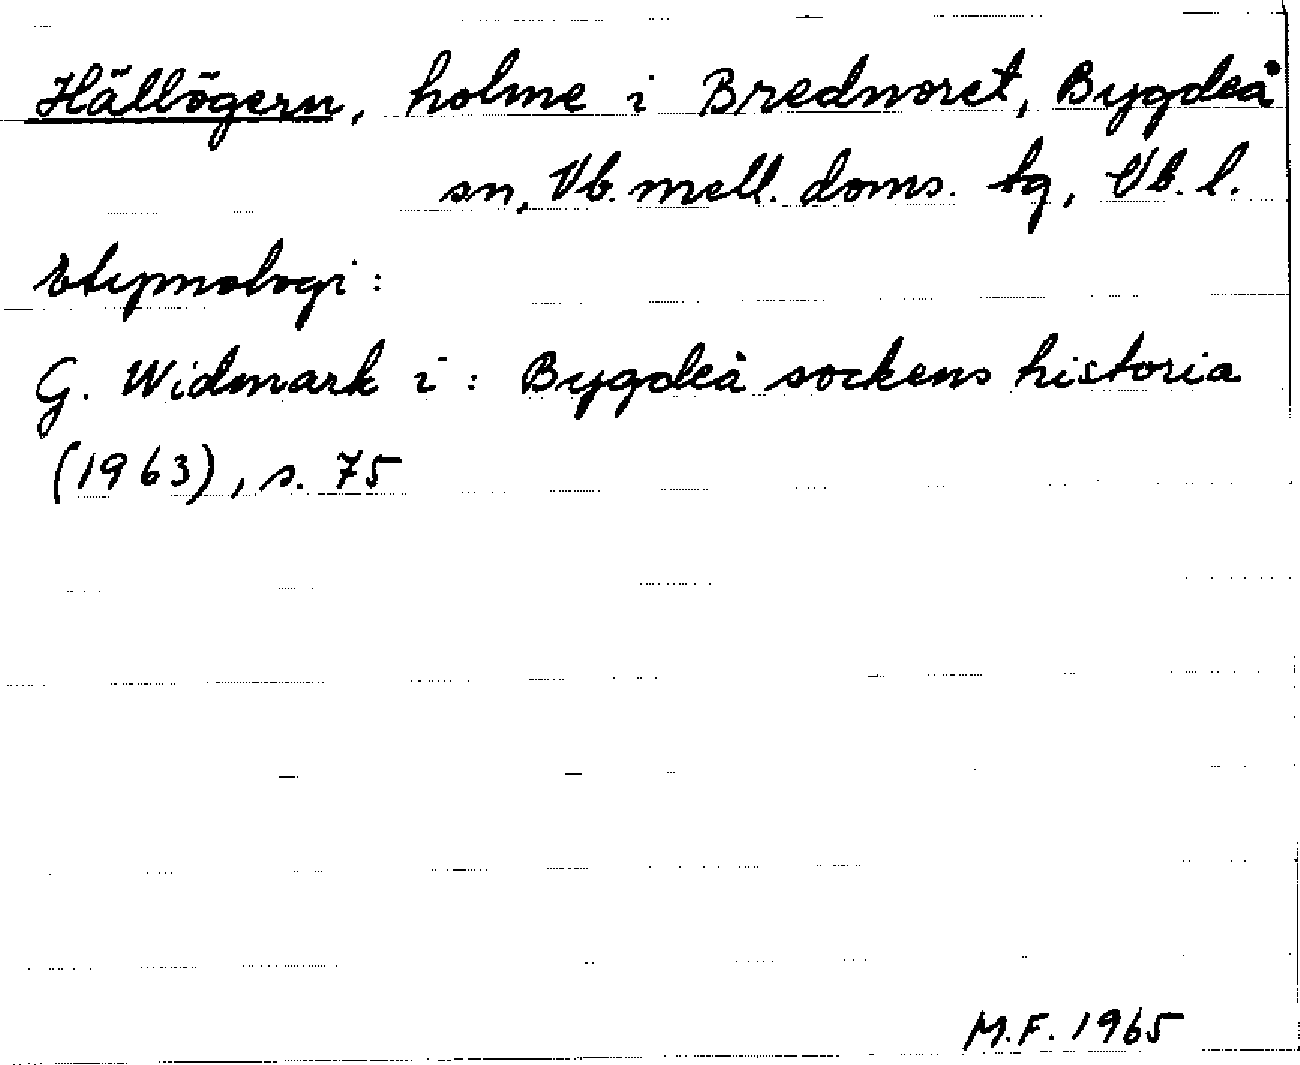 Hällögern, holme i Brednoret, Bygdeå
sn, Vb. mell. doms. tg, Vb. l.
Etymologi:
G. Widmark i: Bygdeå sockens historia
(1963), s. 75
M.F. 1965